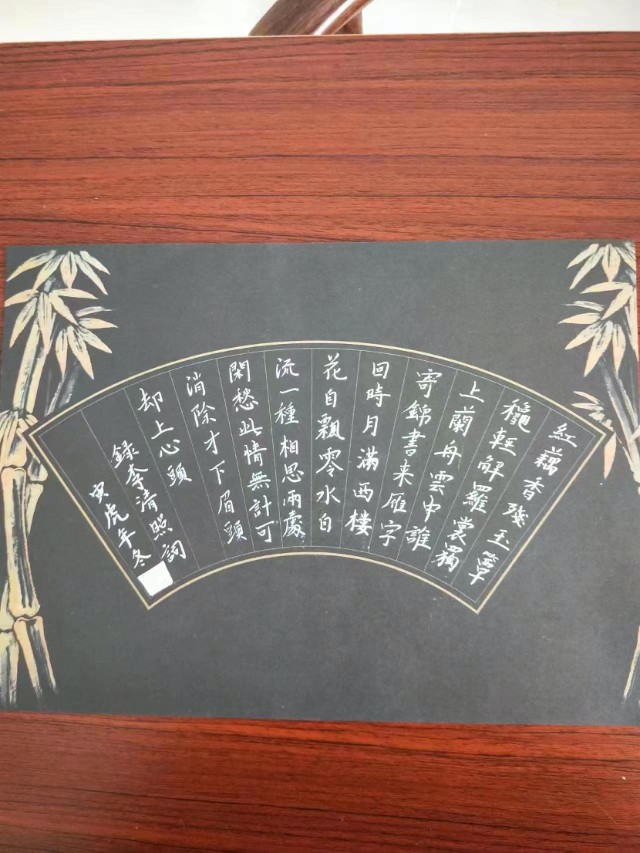 紅藕香殘玉簟
穐輕解羅裳獨
上蘭舟雲中誰
寄錦書来雁字
回時月滿西樓
花自飄零水自
流一種相思兩處
閑愁此情無計可
消除才下眉頭
却上心頭
錄李清照詞
寅虎年冬